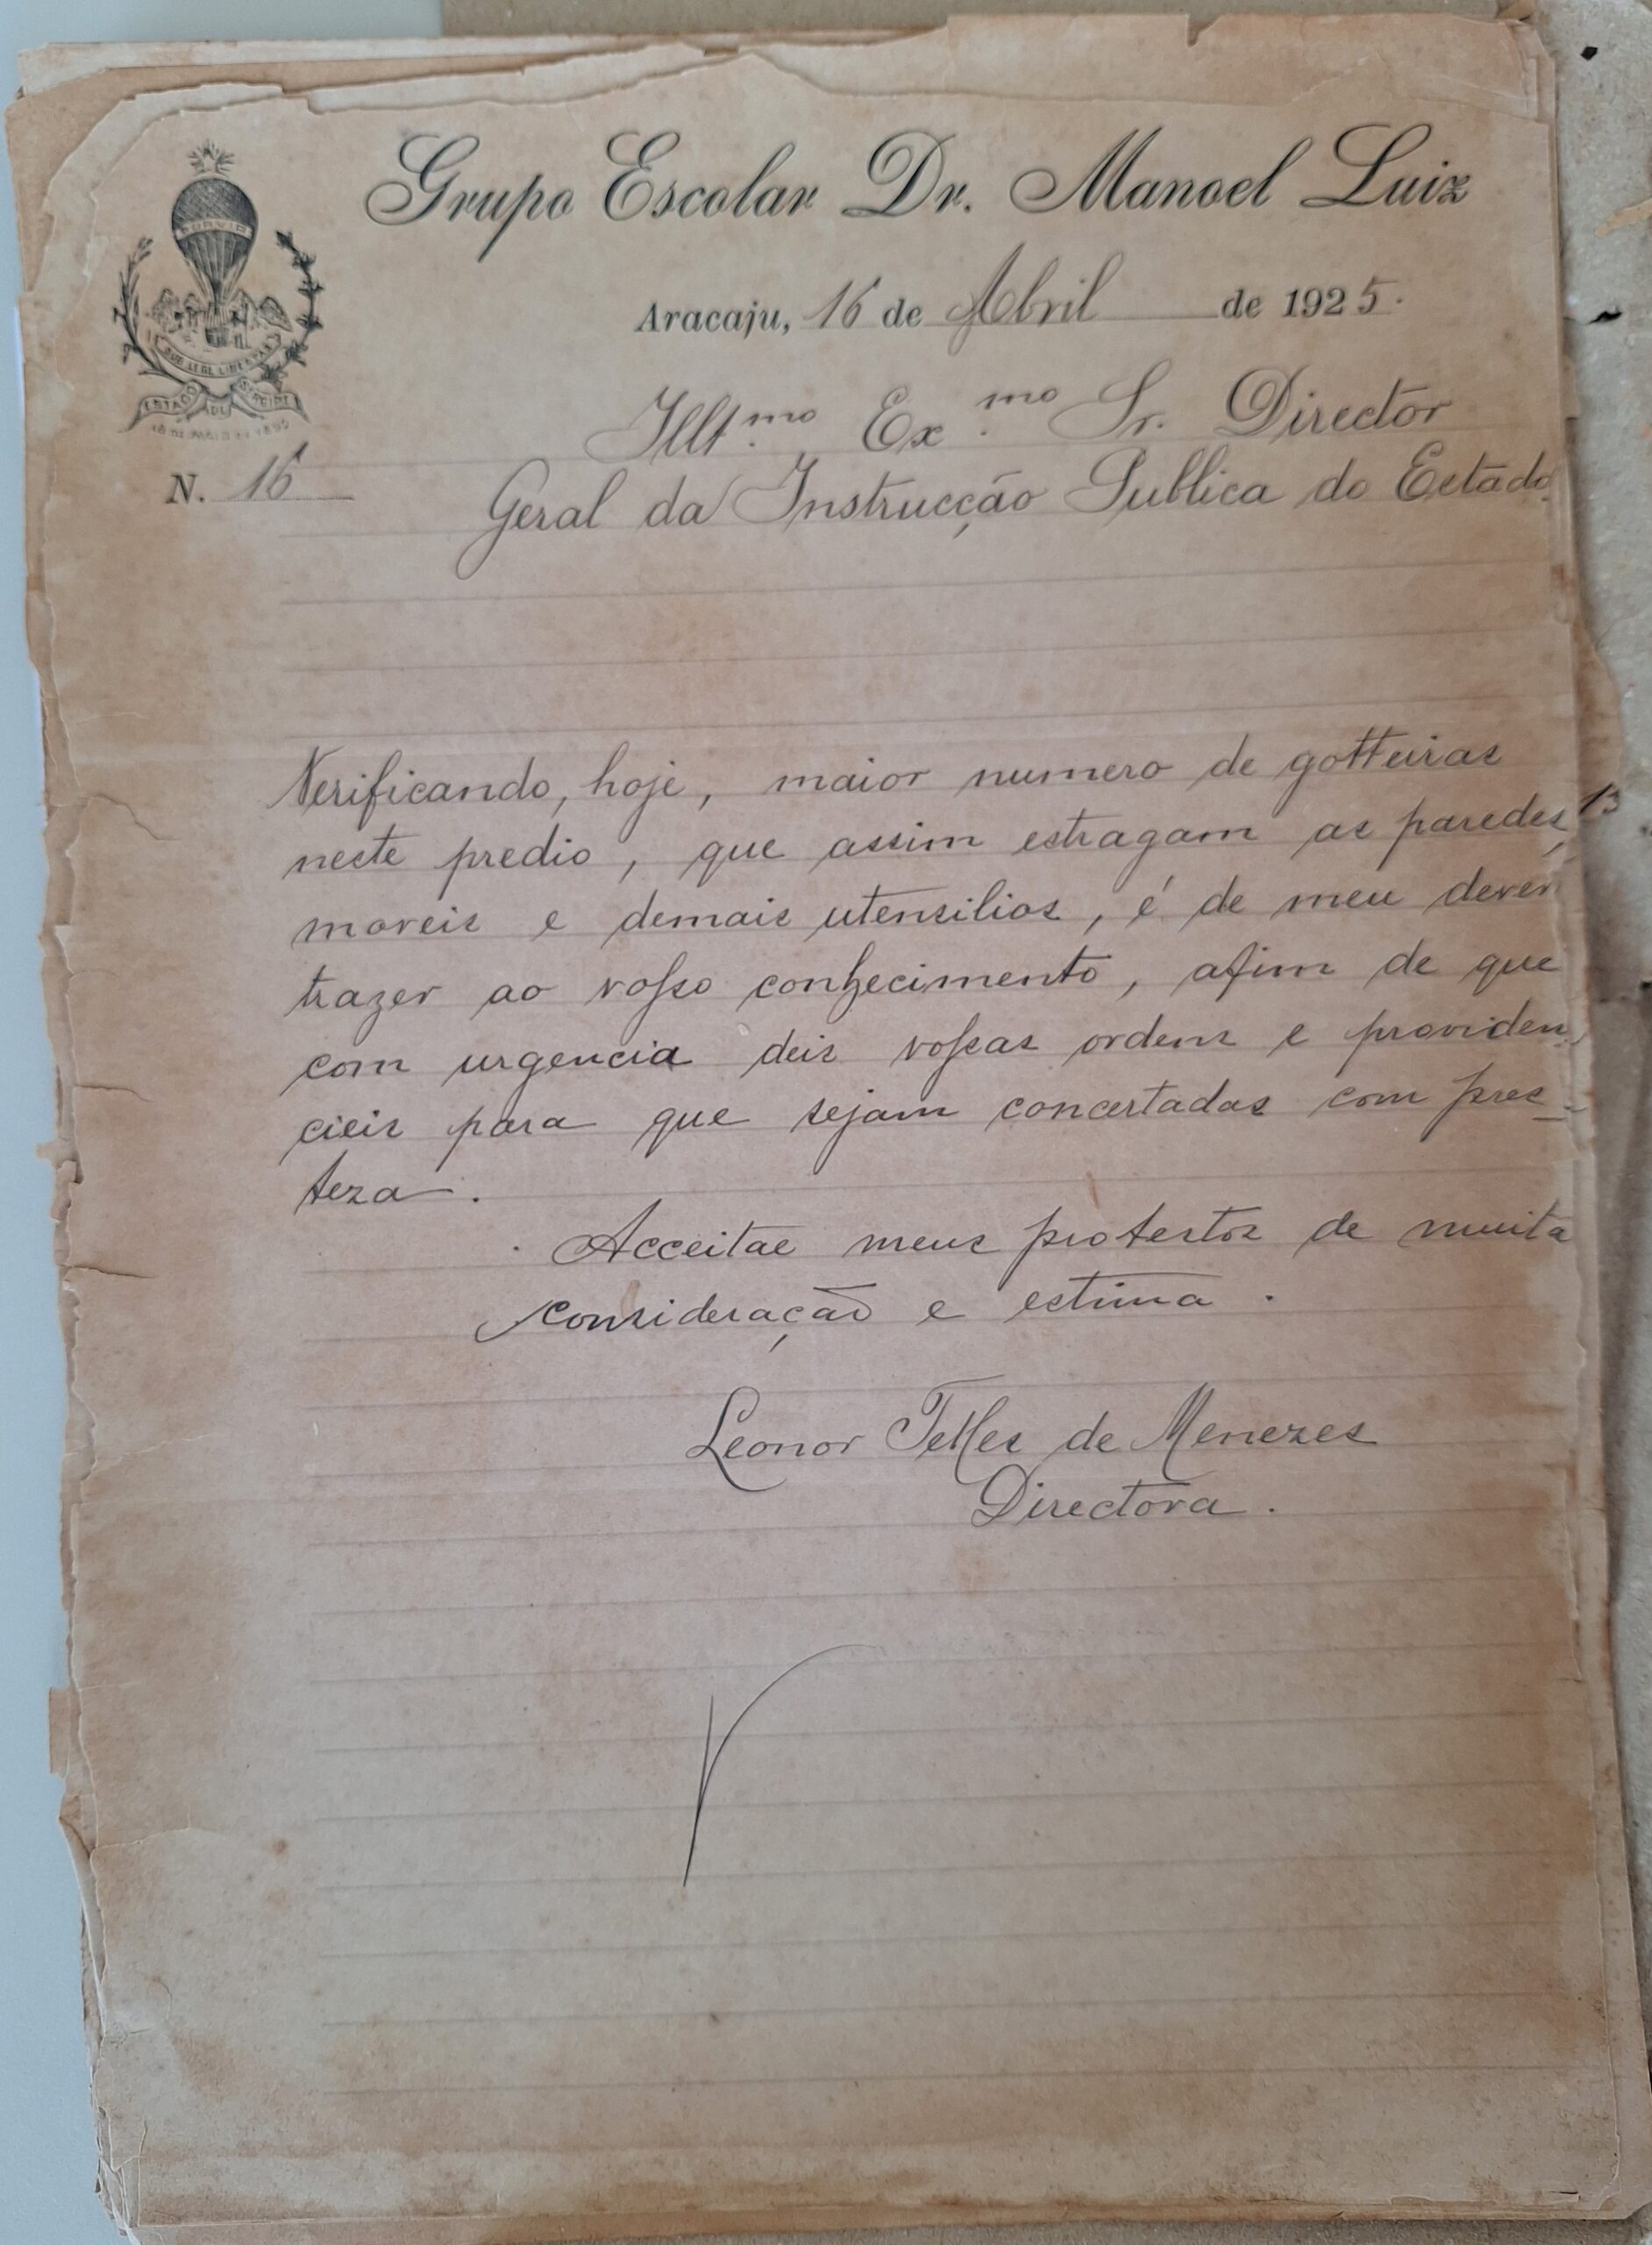 Grupo Escolar Dr. Manoel Luiz
PORVIR
SUB LEGE LIBERTAS
ESTADO DE SERGIPE
18 DE MAIO DE 1892
Aracaju, 16 de Abril de 1925.
Illt.mo Ex.mo Sr. Director
N. 16
Geral da Instrucção Publica do Estado.
Verificando, hoje, maior numero de gotteiras
neste predio, que assim estragam as paredes,
moveis e demais utensilios, é de meu dever
trazer ao vosso conhecimento, afim de que
com urgencia deis vossas ordens e providen
cieis para que sejam concertadas com pres-
teza.
Acceitae meus protestos de muita
consideração e estima.
Leonor Telles de Menezes
Directora.